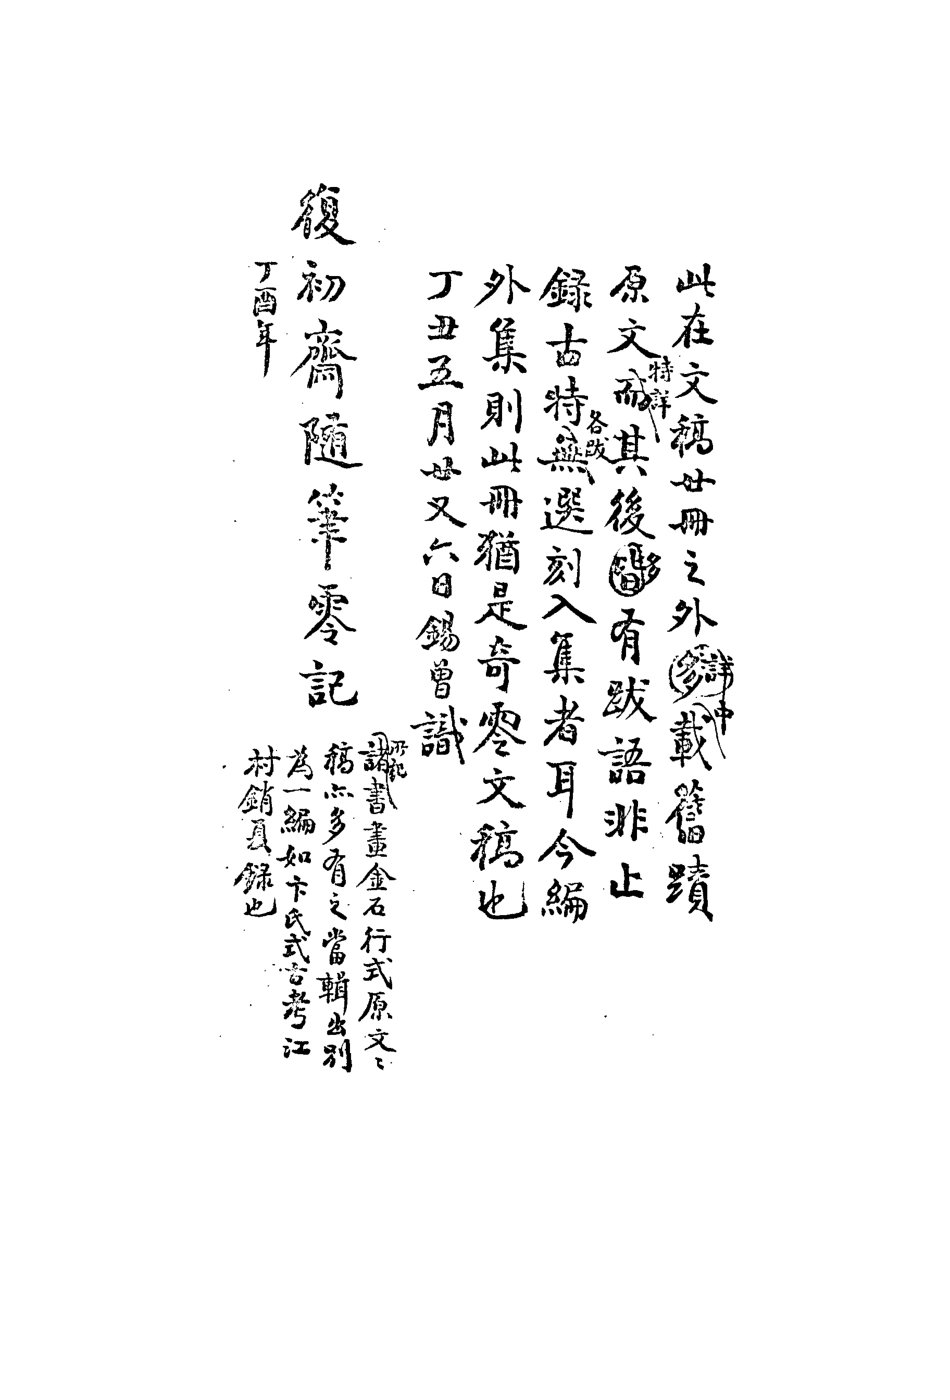 此在文稿廿冊之外多詳中載舊蹟
原文特詳而其後皆多有跋語非止
錄古特各跋無選刻入集者耳今編
外集則此冊猶是奇零文稿也
丁丑五月廿又六日錫曾識
復初齋隨筆零記
丁酉年
所記諸書畫金石行式原文文
稿亦多有之當輯出別
為一編如卞氏式古考江
村銷夏錄也